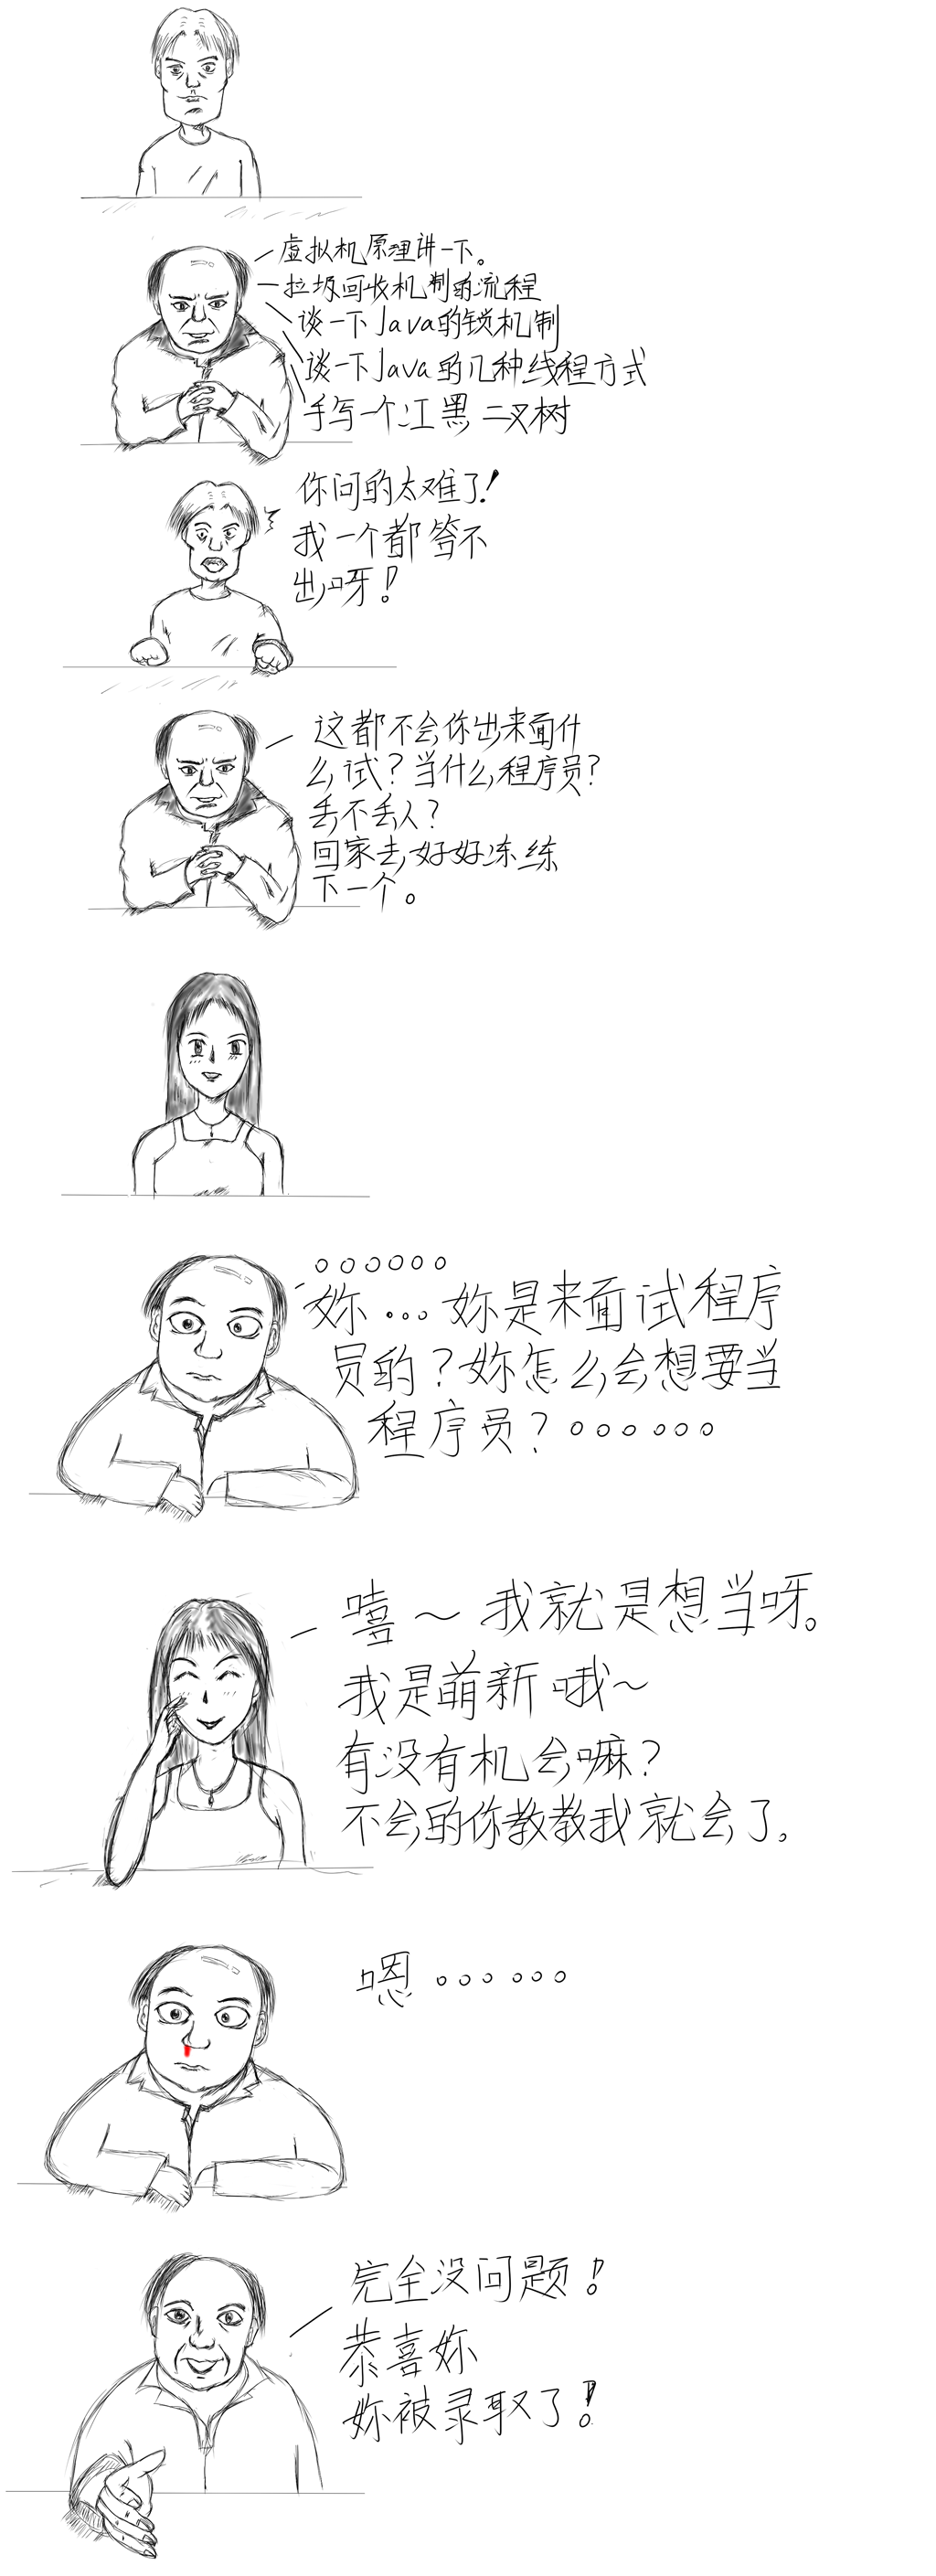 虚拟机原理讲一下。
垃圾回收机制的流程
谈一下Java的锁机制
谈一下Java的几种线程方式
手写一个江黑二叉树
你问的太难了!
我一个都答不
出呀!
这都不会你出来面什
么试?当什么程序员?
丢不丢人?
回家去好好冻练
下一个。
。。。。。。
妳...妳是来面试程序
员的?妳怎么会想要当
程序员?。。。。。。
嘻～我就是想当呀。
我是萌新哦～
有没有机会嘛?
不会的你教教我就会了。
嗯。。。。。。
完全没问题!
恭喜妳
妳被录取了!